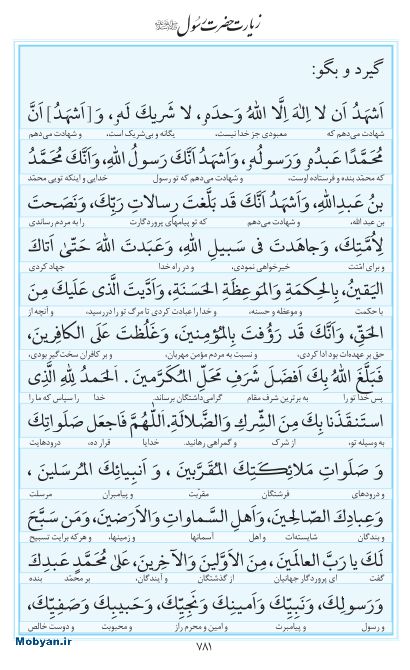 زیارت حضرت رسول
گیرد و بگو:
اَشهَدُ اَن لا اِلٰهَ اِلَّا اللهُ وَحدَهُ، لا شَریكَ لَهُ، وَ[اَشهَدُ] اَنَّ
شهادت می‌دهم که معبودی جز خدا نیست، یگانه و بی‌شریک است، و شهادت می‌دهم
مُحَمَّدًا عَبدُهُ وَرَسولُهُ، وَاَشهَدُ اَنَّكَ رَسولُ اللهِ، وَاَنَّكَ مُحَمَّدُ
که محمّد بنده و فرستاده اوست، و شهادت می‌دهم که تو رسول خدایی و اینکه تویی محمّد
بنُ عَبدِاللهِ، وَاَشهَدُ اَنَّكَ قَد بَلَّغتَ رِسالاتِ رَبِّكَ، وَنَصَحتَ
بن عبد الله، و شهادت می‌دهم که تو پیامهای پروردگارت را به مردم رساندی
لِاُمَّتِكَ، وَجاهَدتَ فی سَبیلِ اللهِ، وَعَبَدتَ اللهَ حَتّیٰ اَتاكَ
و برای امّتت خیرخواهی نمودی، و در راه خدا جهاد کردی
الیَقینُ، بِالحِکمَةِ وَالمَوعِظَةِ الحَسَنَةِ، وَاَدَّیتَ الَّذی عَلَیكَ مِنَ
با حکمت و موعظه و حسنه، و خدا را عبادت کردی تا مرگ تو را دررسید، و آنچه از
الحَقِّ، وَاَنَّكَ قَد رَؤُفتَ بِالمُؤمِنینَ، وَغَلُظتَ عَلَی الکافِرینَ،
حق بر عهده‌ات بود ادا کردی، و نسبت به مردم مؤمن مهربان، و بر کافران سخت‌گیر بودی،
فَبَلَّغَ اللهُ بِكَ اَفضَلَ شَرَفِ مَحَلِّ المُکَرَّمینَ . اَلحَمدُ لِلّٰهِ الَّذِی
پس خدا تو را به برترین شرف مقام گرامی‌داشتگان برساند، خدا را سپاس که ما را
استَنقَذَنا بِكَ مِنَ الشِّركِ وَالضَّلالَةِ. اَللّٰهُمَّ فَاجعَل صَلَواتِكَ
به وسیله تو، از شرک و گمراهی رهانید. خدایا قرار ده، درودهایت
وَ صَلَواتِ مَلائِکَتِكَ المُقَرَّبینَ ، وَ اَنبِیائِكَ المُرسَلینَ ،
و درودهای فرشتگان مقرّبت و پیامبران مرسلت
وَعِبادِكَ الصّالِحینَ، وَاَهلِ السَّماواتِ وَالاَرَضینَ، وَمَن سَبَّحَ
و بندگان شایسته‌ات و اهل آسمانها و زمینها، و هرکه برایت تسبیح
لَكَ یا رَبَّ العالَمینَ، مِنَ الاَوَّلینَ وَالآخِرینَ، عَلیٰ مُحَمَّدٍ عَبدِكَ
گفت ای پروردگار جهانیان از گذشتگان و آیندگان، بر محمّد بنده
وَرَسولِكَ، وَنَبِیِّكَ وَاَمینِكَ وَنَجِیِّكَ، وَحَبیبِكَ وَصَفِیِّكَ،
و رسول و پیامبرت و امین و محرم راز و محبوبت و دوست خالص
Mobyan.ir
۷۸۱